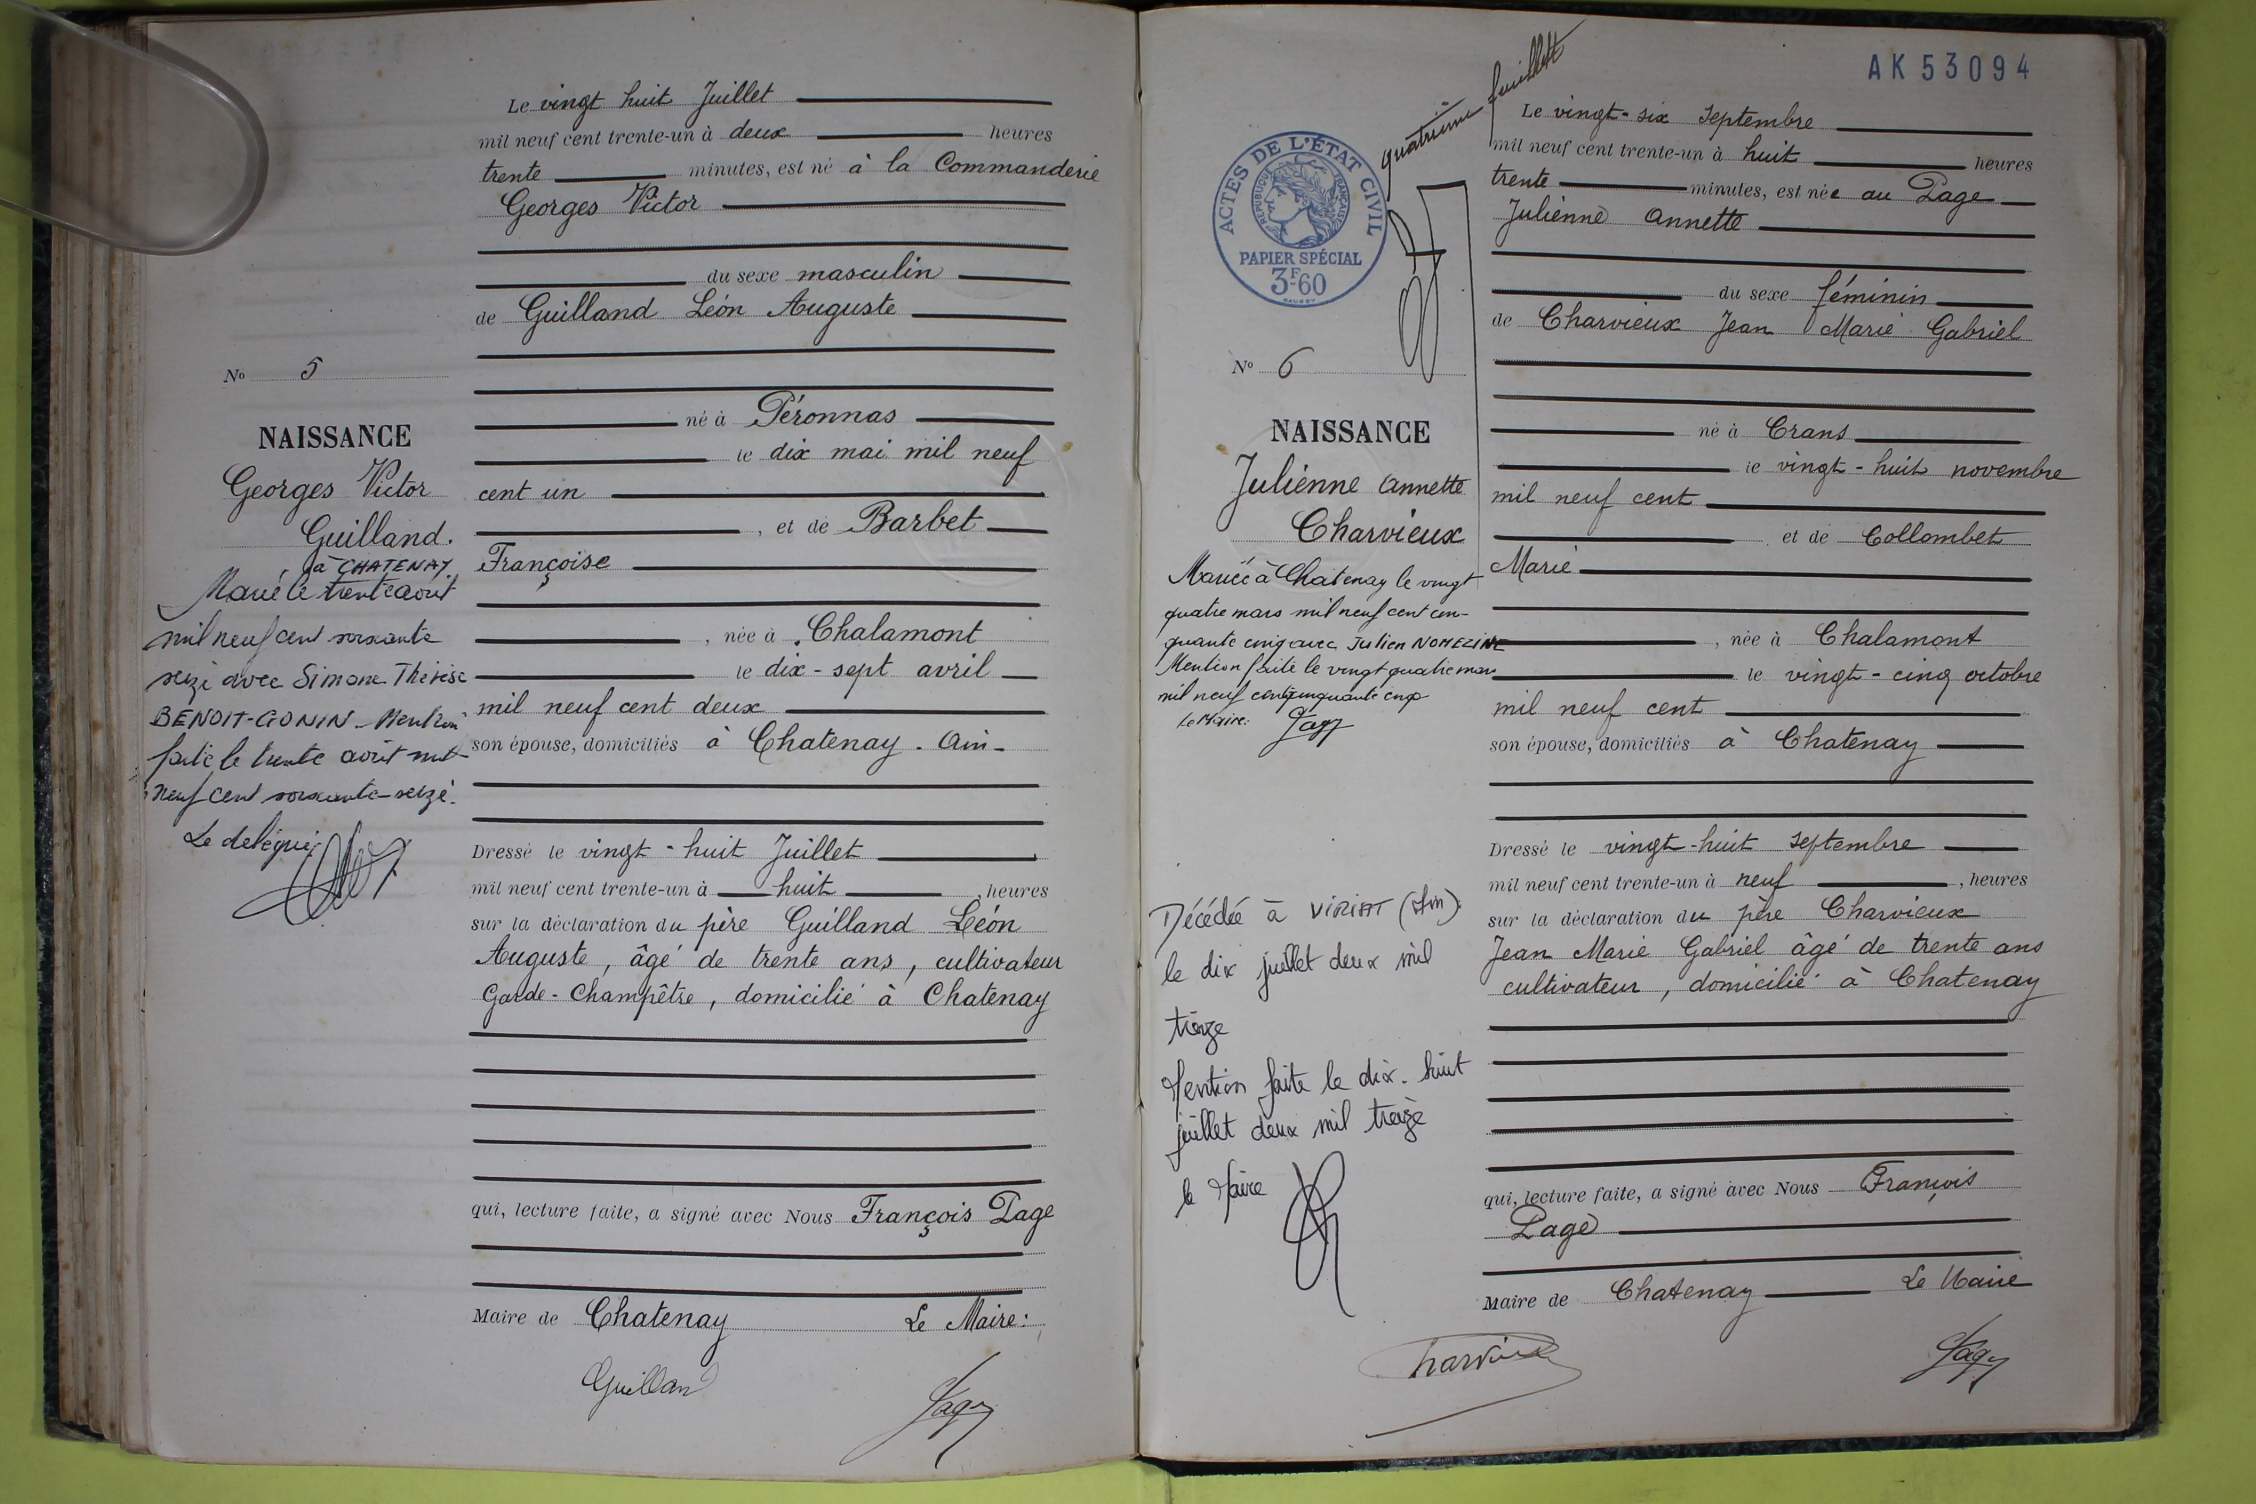 Le vingt huit Juillet
mil neuf cent trente-un à deux heures
trente minutes, est né à la Commanderie
Georges Victor
du sexe masculin
de Guilland Léon Auguste
né à Péronnas
le dix mai mil neuf
cent un
, et de Barbet
Françoise
, née à Chalamont
le dix-sept avril
mil neuf cent deux
son épouse, domiciliés à Chatenay. Ain
Dressé le vingt-huit Juillet
mil neuf cent trente-un à huit, heures
sur la déclaration du père Guilland Léon
Auguste, âgé de trente ans, cultivateur
Garde-Champêtre, domicilié à Chatenay
qui, lecture faite, a signé avec Nous François Page
Maire de Chatenay Le Maire:
Guilland
Page
No 5
NAISSANCE
Georges Victor
Guilland.
à CHATENAY
Marié le trente août
mil neuf cent soixante
seize avec Simone Thérèse
BENOIT-GONIN - Mention
faite le trente août mil
neuf cent soixante-seize.
Le délégué
AK53094
quatrième feuillet
ACTES DE L'ÉTAT CIVIL
RÉPUBLIQUE FRANÇAISE
PAPIER SPÉCIAL
3F60
No 6
NAISSANCE
Julienne Annette
Charvieux
Mariée à Chatenay le vingt
quatre mars mil neuf cent cin-
quante cinq avec Julien
Mention faite le vingt quatre mars
mil neuf cent cinquante cinq
Le Maire: Page
Décédée à VIRIAT (Ain)
le dix juillet deux mil
treize
Mention faite le dix-huit
juillet deux mil treize
le Maire
Le vingt-six Septembre
mil neuf cent trente-un à huit heures
trente minutes, est née au Page
Julienne Annette
du sexe féminin
de Charvieux Jean Marie Gabriel
né à Crans
le vingt-huit novembre
mil neuf cent
et de Collombet
Marie
, née à Chalamont
le vingt-cinq octobre
mil neuf cent
son épouse, domiciliés à Chatenay
Dressé le vingt-huit Septembre
mil neuf cent trente-un à neuf, heures
sur la déclaration du père Charvieux
Jean Marie Gabriel âgé de trente ans
cultivateur, domicilié à Chatenay
qui, lecture faite, a signé avec Nous François
Page
Maire de Chatenay Le Maire
Charvieux
Page